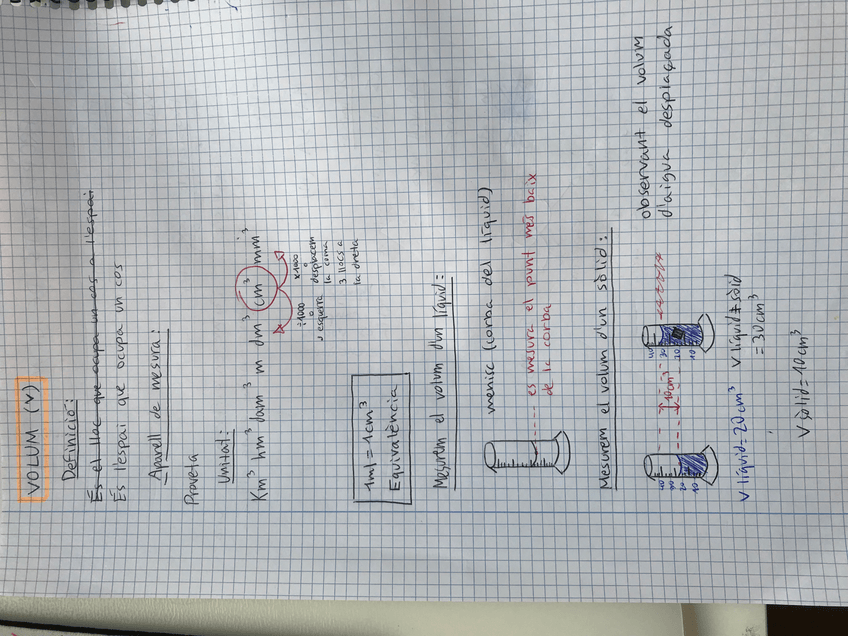 VOLUM (V)
Definició:
És el lloc que ocupa un cos o l'espai
És l'espai que ocupa un cos
Aparell de mesura:
Proveta
Unitat:
Km³ hm³ dam³ m dm³ cm³ mm³
:1000
o
esquerra
x1000
o
desplacem
la coma
3 llocs a
la dreta
1ml = 1cm³
Equivalència
Mesurem el volum d'un líquid:
menisc (corba del líquid)
es mesura el punt més baix
de la corba
Mesurem el volum d'un sòlid:
40
30
20
10
10cm³
40
30
20
10
observant el volum
d'aigua desplaçada
V líquid = 20cm³
V líquid + sòlid
= 30cm³
V sòlid = 10cm³